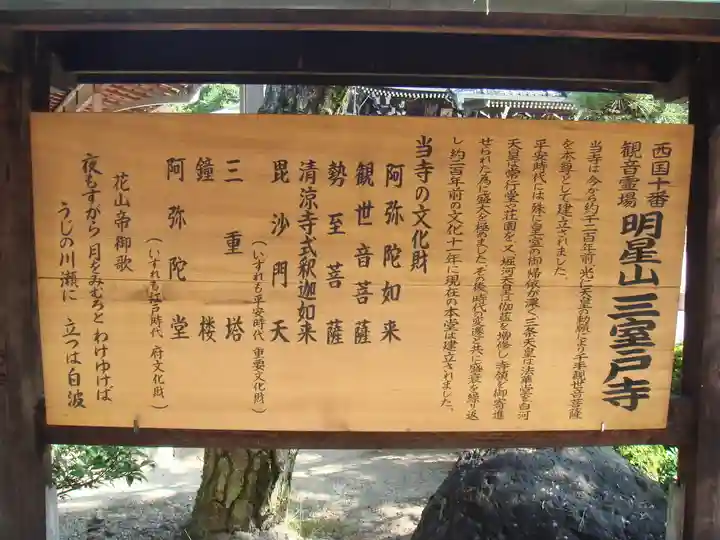 西国十番
観音霊場
明星山三室戸寺
当寺は今から約千二百年前、光仁天皇の勅願により千手観世音菩薩
を本尊として建立されました。
平安時代には殊に皇室の御帰依が深く、三条天皇は法華堂を、白河
天皇は常行堂や荘園を、又、堀河天皇は伽藍を増修し、寺領を御寄進
せられた為に盛大を極めました。その後、時代の変遷と共に盛衰を繰り返
し、約二百年前の文化十一年に現在の本堂は建立されました。
当寺の文化財
阿弥陀如来
観世音菩薩
勢至菩薩
清涼寺式釈迦如来
毘沙門天
（いずれも平安時代 重要文化財）
三重塔
鐘楼
阿弥陀堂
（いずれも江戸時代 府文化財）
花山帝御歌
夜もすがら 月をみむろと わけゆけば
うじの川瀬に 立つは白波